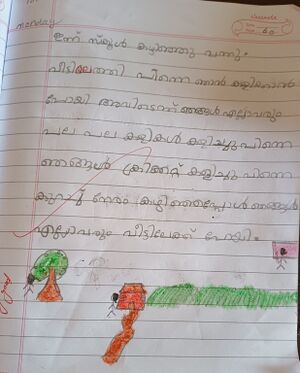 monday
60
ഇന്ന് സ്കൂൾ കഴിഞ്ഞു വന്നു.
വീട്ടിലെത്തി പിന്നെ ഞാൻ കളിക്കാൻ
പോയി അവിടെന്ന് ഞങ്ങൾ എല്ലാവരും
പല പല കളികൾ കളിച്ചു പിന്നെ
ഞങ്ങൾ ക്രിക്കറ്റ് കളിച്ചു പിന്നെ
കുറച്ച് നേരം കഴിഞ്ഞപ്പോൾ ഞങ്ങൾ
എല്ലാവരും വീട്ടിലേക്ക് പോയി.